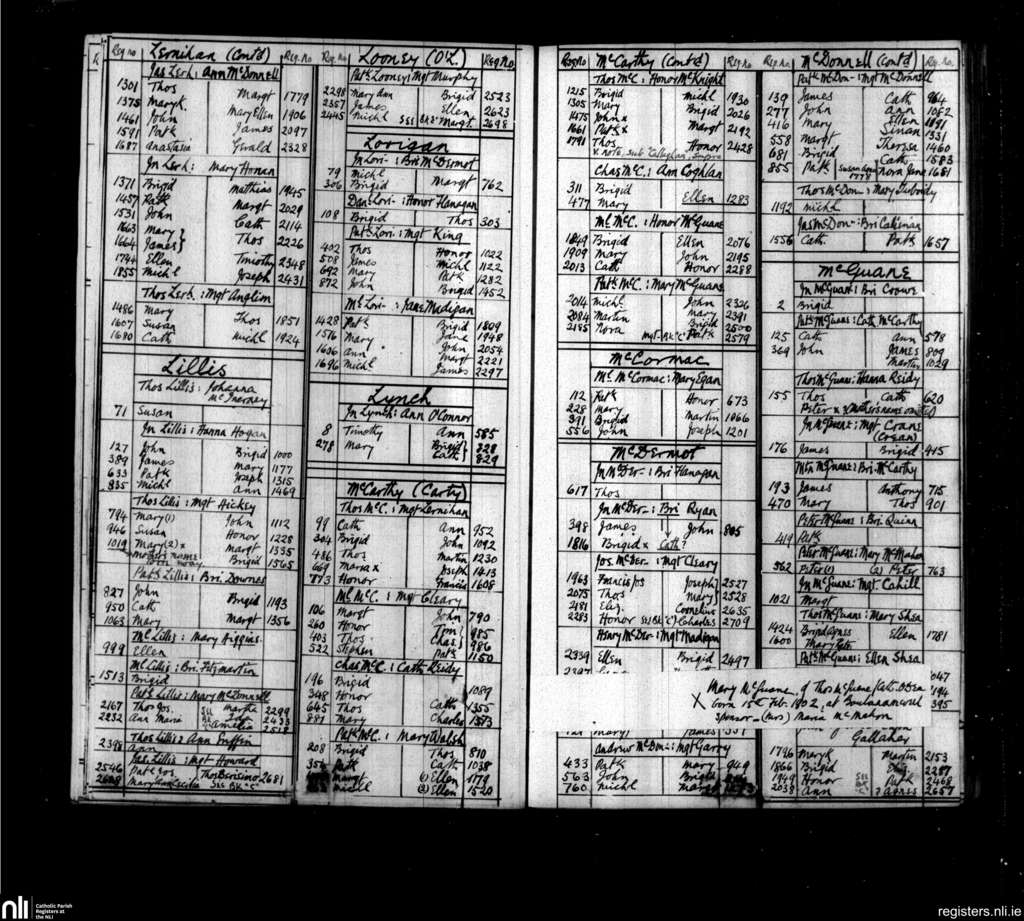 Reg no Leonihan (Contd) Reg. No
Jas Leih: Ann McDonnell
1301 Thos Margt 1779
1375 MaryK. Mary Ellen 1906
1461 John James 2097
1591 Patk Oswald 2328
1687 Anastasia
Jn Leih: Mary Honan
1371 Brigid Mathias 1945
1457 Patk Margt 2029
1531 John Cath 2114
1663 Mary } Thos 2226
1664 James }
1744 Ellen Timothy 2348
1855 Michl Joseph 2431
Thos Leih: Mgt Anglim
1486 Mary Thos 1851
1607 Susan Michl 1924
1680 Cath
Lillis
Thos Lillis: Johanna
McInerney
71 Susan
Jn Lillis: Hanna Hogan
127 John Brigid 1000
389 James Mary 1177
633 Patk Joseph 1315
835 Michl Ann 1469
Thos Lillis: Mgt Hickey
794 Mary (1) John 1112
946 Susan Honor 1228
1019 Mary (2) x Margt 1335
mothers name Brigid 1565
Patk Lillis: Bri. Downes
827 John Brigid 1193
950 Cath Margt 1356
1063 Mary
Ml Lillis: Mary Higgins
999 Ellen
Ml Lillis: Bri. Fitzmartin
1513 Brigid
Patk Lillis: Mary McDonnell
2167 Thos Jos. Martha 2299
2232 Ann Maria 2433
Amelia 2518
Thos Lillis: Ann Griffin
2398 Ann
Pat. Lillis: Mgt Howard
2546 Patk Jos. 2681
Reg. No Looney (O'L) Reg No
Patk Looney: Mgt Murphy
2298 Mary Ann Brigid 2523
2357 James Ellen 2623
2445 Michl See BK2 Margt. 2698
Lorigan
Jn Lori-: Bri McDermot
79 Michl Margt 762
306 Brigid
Danl Lori-: Honor Flanagan
108 Brigid Thos 303
Patk Lori: Mgt King
402 Thos Honor 1022
508 James Michl 1122
692 Mary Patk 1232
872 John Brigid 1452
Ml Lori-: Jane Madigan
1428 Patk Brigid 1809
1516 Mary Jane 1948
1606 Ann John 2054
1696 Michl Margt 2221
James 2297
Lynch
Jn Lynch: Ann O'Connor
8 Timothy Ann 585
278 Mary Brigid } 828
Cath } 829
McCarthy (Carty)
Thos McC.: Mgt Lernihan
99 Cath Ann 952
304 Brigid John 1092
486 Thos Martin 1230
669 Maria x Joseph 1413
773 Honor Francis 1608
Ml McC.: Mgt Cleary
106 Margt John 790
260 Honor Tom } 985
403 Thos Chas } 986
522 Stephen Patk 1150
Chas McC.: Cath Reidy
196 Brigid 1089
348 Honor Cath 1355
645 Thos Charles 1573
881 Mary
Patk McC.: Mary Walsh
208 Brigid Thos 810
Patk Cath 1038
Margt (1) Ellen 1179
Michl (2) Ellen 1520
Reg No McCarthy (Cont'd) Reg no
Thos McC: Honor McKnight
1215 Brigid Michl 1930
1305 Mary Brigid 2026
1475 John x Margt 2192
1661 Patk x Honor 2428
1791 Thos
x note, sub Callaghan, supra
Chas McC.: Ann Coghlan
311 Brigid Ellen 1283
477 Mary
Ml McC.: Honor McGuane
1849 Brigid Ellen 2076
1909 Mary John 2195
2013 Cath Honor 2288
Patk McC.: Mary McGuane
2014 Michl John 2326
2084 Martin Mary 2391
2185 Nora Brigid 2500
Mgt-BK "C" Patk 2579
McCormac
Ml McCormac: Mary Egan
112 Patk Honor 673
228 Mary Martin 1066
391 Brigid Joseph 1201
556 John
McDermot
Jn McDer-: Bri Flanagan
617 Thos
Jn McDer-: Bri Ryan
398 James John 805
1816 Brigid x Cath?
Jos. McDer-: Mgt Cleary
1963 Francis Jos Joseph } 2527
2075 Thos Mary } 2528
2181 Eliz. Cornelius 2635
2283 Honor See BK "C" Charles 2709
Henry McDer-: Mgt Madigan
2339 Ellen Brigid 2497
Mary McGuane of Thos McGuane/Cath O'Dea
x born 15th Feb 1902, at Boulnamweel
Sponsor - (Mrs) Maria McMahon
Mary } James 551
Andrew McDon-: Mgt Garry
433 Patk Mary 949
563 John Brigid
760 Michl Margt
Reg. no McDonnell (Cont'd) Reg. no
Patk McDon-: Mgt McDonnell
139 James Cath 964
277 John Ann 1082
416 Mary Ellen 1197
558 Margt Susan 1331
681 Brigid Theresa 1460
855 Patk Cath 1583
Nora Jane 1681
Thos McDon-: Mary Tubridy
1192 Michl
Jas McDon-: Bri Cahinan
1556 Cath. Patk 1657
McGuane
Jn McGuane: Bri Crowe
2 Brigid
Patk McGuane: Cath McCarthy
125 Cath Ann 578
369 John James 809
Martin 1029
Thos McGuane: Hanna Reidy
155 Thos Cath 620
Peter x x Mothers name omitted
Jn McGuane: Mgt Crane
(Cogan)
176 James Brigid 415
Mtn McGuane: Bri. McCarthy
193 James Anthony 715
470 Mary Thos 901
Peter McGuane: Bri. Quinn
419 Patk
Peter McGuane: Mary McMahon
562 Peter (1) (2) Peter 763
Jn McGuane: Mgt. Cahill
1021 Margt
Thos McGuane: Mary Shea
1424 Brigid Agnes Ellen 1781
1600 Mary Kate
Patk McGuane: Ellen Shea
1047
194
395
Gallahar
1796 MaryK Martin 2153
1866 Brigid Eliz. 2287
1949 Honor Patk 2468
2038 Ann Agnes 2657
nli Catholic Parish
Registers at
the NLI
registers.nli.ie